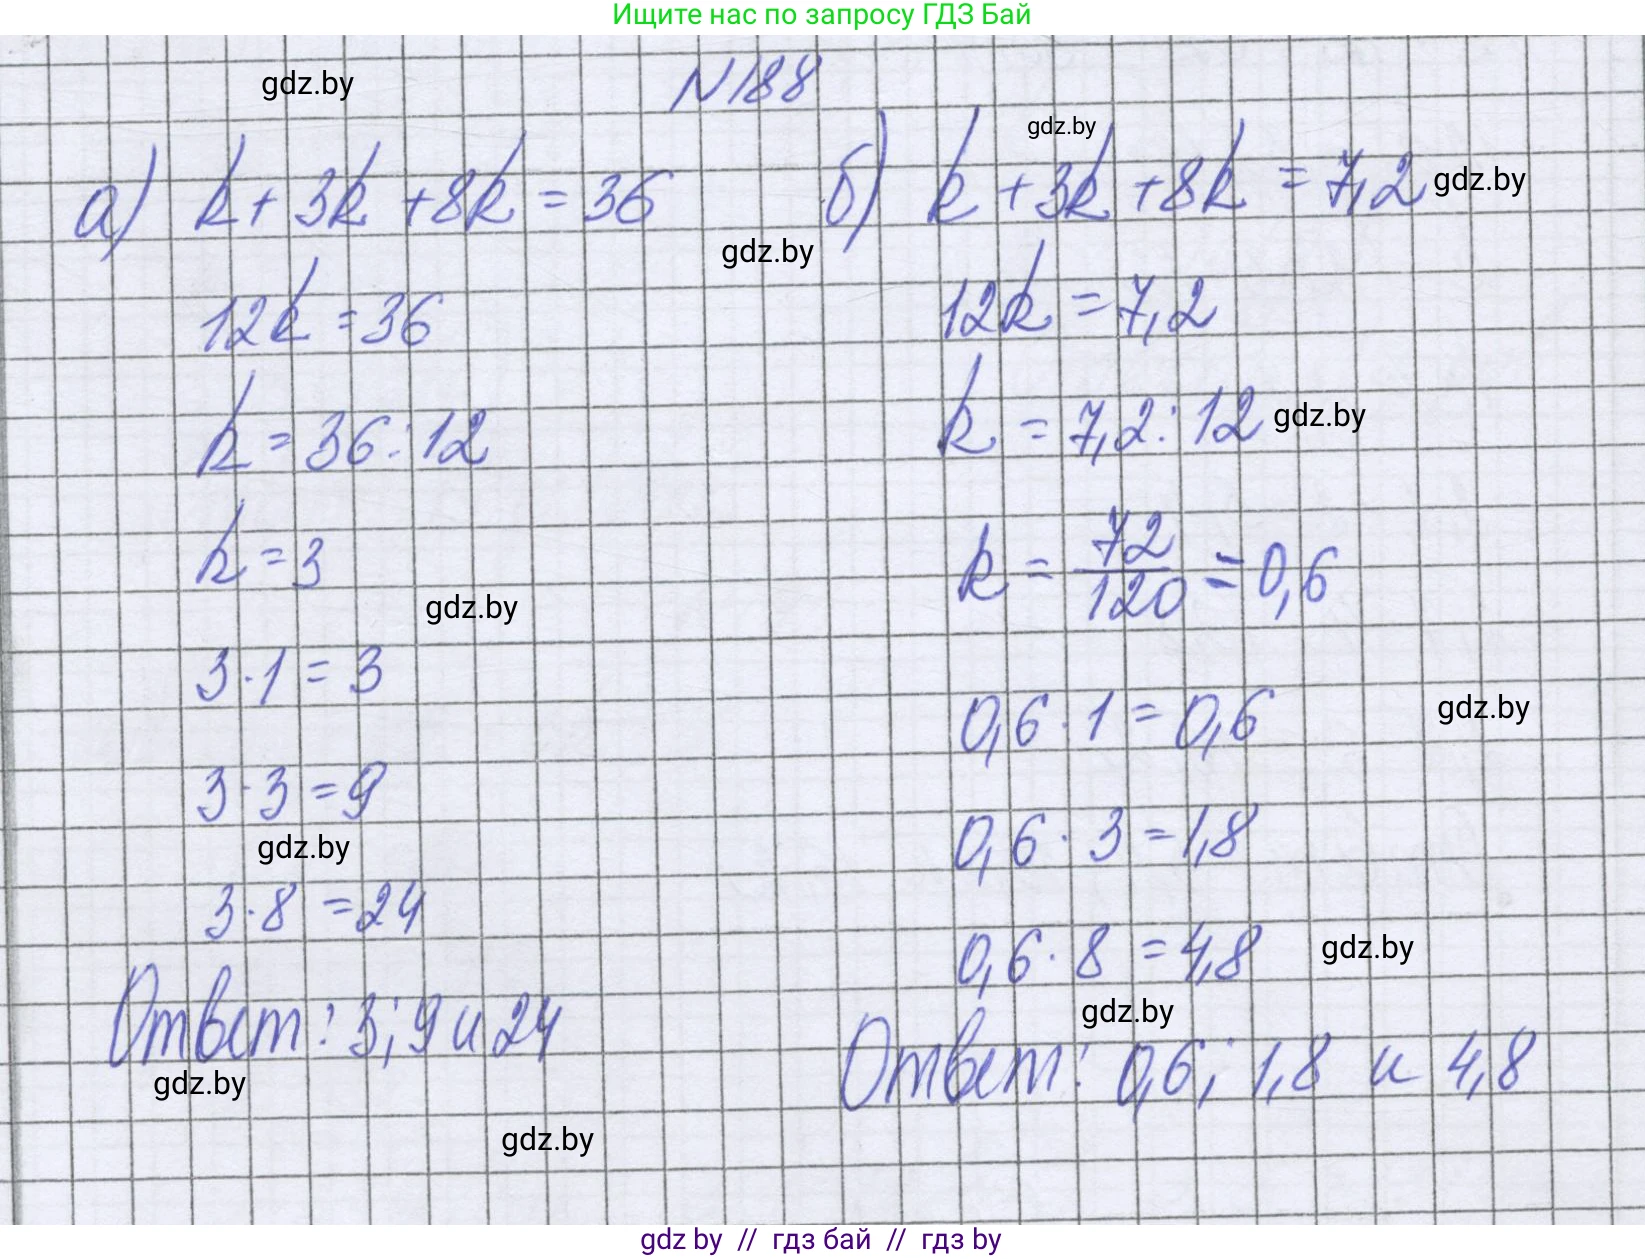 Ищите нас по запросу ГДЗ Бай
N188
gdz.by
gdz.by
а) k + 3k + 8k = 36
gdz.by
12k = 36
k = 36 : 12
k = 3
gdz.by
3 · 1 = 3
3 · 3 = 9
gdz.by
3 · 8 = 24
Ответ: 3; 9 и 24
gdz.by
gdz.by
б) k + 3k + 8k = 7,2
gdz.by
12k = 7,2
k = 7,2 : 12
gdz.by
k = 72/120 = 0,6
0,6 · 1 = 0,6
gdz.by
0,6 · 3 = 1,8
0,6 · 8 = 4,8
gdz.by
gdz.by
Ответ: 0,6; 1,8 и 4,8
gdz by // гдз бай // гдз by